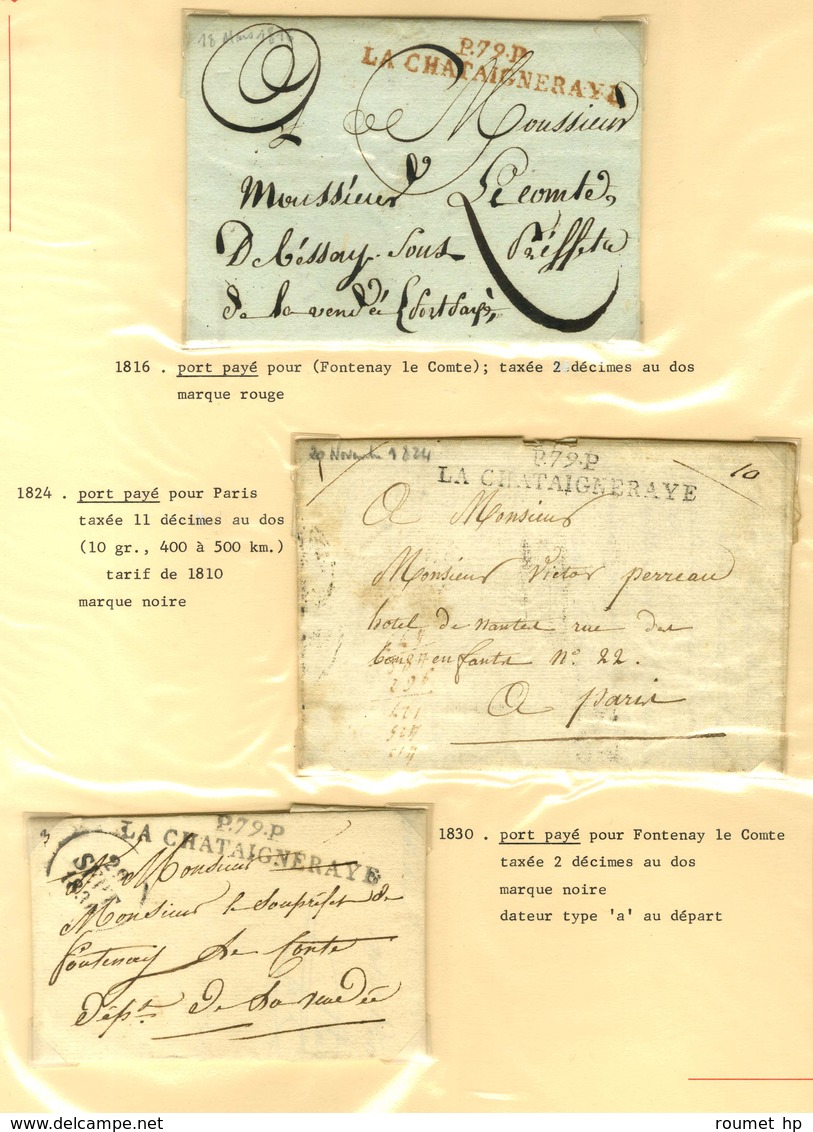 18 Mars 181
P.79.P.
LA CHATAIGNERAYE
A Monsieur
Monsieur Le comte
De bessay. Sous Préffet
de la vendée
1816 . port payé pour (Fontenay le Comte); taxée 2 décimes au dos
marque rouge
29 Novembre 1824
P.79.P
LA CHATAIGNERAYE
10
1824 . port payé pour Paris
taxée 11 décimes au dos
(10 gr., 400 à 500 km.)
tarif de 1810
marque noire
A Monsieur
Monsieur Victor perreau
hotel de nantes rue des
bons enfants n° 22.
A paris
P.79.P
LA CHATAIGNERAYE
3
A Monsieur
Monsieur le Souprefet de
fontenay le Conte
dépt. de La vendée
1830 . port payé pour Fontenay le Comte
taxée 2 décimes au dos
marque noire
dateur type 'a' au départ
roumet hp
www.delcampe.net